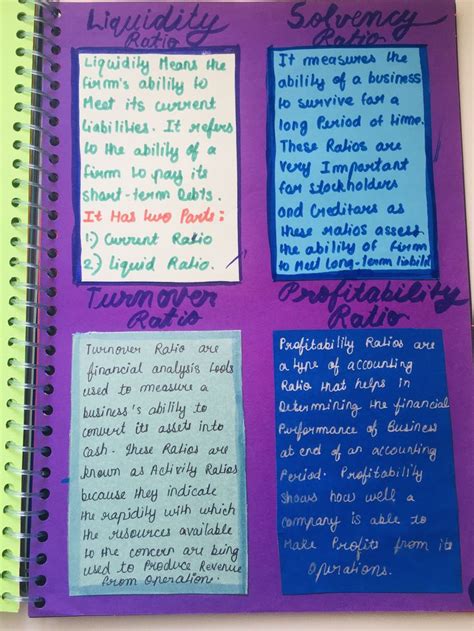 Liquidity
Ratio
Liquidity Means the
firm's ability to
Meet its current
liabilities. It refers
to the ability of a
firm to pay its
short-term Debts.
It Has two Parts:
1.) Current Ratio
2.) Liquid Ratio.
Solvency
Ratio
It measures the
ability of a business
to survive for a
long Period of time.
These Ratios are
very Important
for stockholders
and Creditors as
these ratios assess
the ability of firm
to Meet long-term liabilit
Turnover
Ratio
Turnover Ratio are
financial analysis tools
used to measure a
business's ability to
convert its assets into
Cash. These Ratios are
known as Activity Ratios
because they indicate
the rapidity with which
the resources available
to the concern are being
used to Produce Revenue
From Operation.
Profitability
Ratio
Profitability Ratios are
a type of accounting
Ratio that helps in
Determining the financial
Performance of Business
at end of an accounting
Period. Profitability
shows how well a
company is able to
Make Profits from its
Operations.